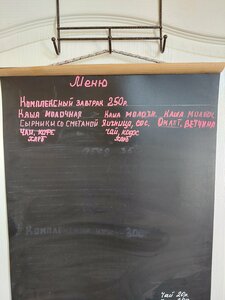 Меню
Комплексный завтрак 250р.
Каша молочная - Каша молочн. Каша молочн.
Сырники со сметаной Яичница, сос. Омлет, ветчина
чай, кофе чай, кофе
хлеб хлеб
Чай 20р.